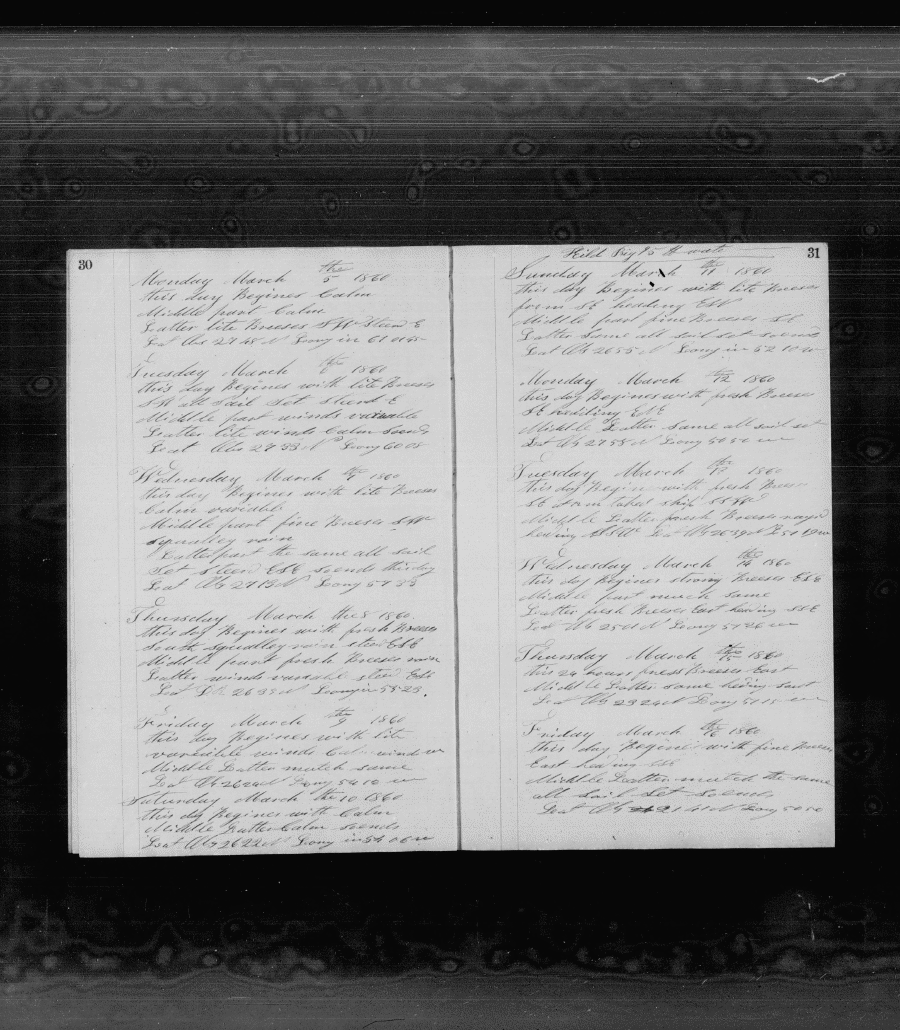 30
Monday March the 5 1860
this day Begines Calm
Middle part Calm
Latter lite Breeses SW Steerd E
Lat Obs 27 48 N Long in 61 01
Tuesday March the 6 1860
this day Begines with lite Breeses
SW all Sail Set Sterd E
Middle part winds variable
Latter lite winds Calm Soends
Lat Obs 27 33 N Long 60 08
Wednesday March the 7 1860
this day Begines with lite Breeses
Calm variable
Middle part fine Breeses SW
squalley rain
Latter part the same all sail
Set Steerd ESE soends this day
Lat Obs 27 13 N Long 57 23
Thursday March the 8 1860
this day Begines with fresh Breeses
South squalley rain sterd ESE
Middle part fresh Breeses rain
Latter winds variable sterd ESE
Lat Ob 26 33 N Long in 55 23
Friday March the 9 1860
this day Begines with lite
varieible winds Calm wind
Middle Latter mutch same
Lat Ob 26 24 N Long 54 10 w
Saturday March the 10 1860
this day Begines with Calm
Middle Latter Calm Soends
Lat Ob 26 22 N Long in 54 06 w
31
Kild Pig
Sunday March the 11 1860
this day Begines with lite Breeses
from SE heading
Middle part fine Breeses SE
Latter same all sail set soends
Lat Ob 26 55 N Long in 52 10 w
Monday March the 12 1860
this day Begines with fresh Breeses
SE heading ENE
Middle Latter same all sail set
Lat Ob 27 58 N Long 50 50 w
Tuesday March the 13 1860
this day Begin with fresh Breeses
SE
Middle Latter fresh Breeses
heaing Lat Ob
Wednesday March the 14 1860
this day Begines strong Breeses ESE
Middle part mutch same
Latter fresh Breeses East heaing SSE
Lat Ob 25 41 N Long 51 26 w
Thursday March the 15 1860
this 24 hours fresh Breeses East
Middle Latter same heding
Lat Ob 23 24 N Long 51 15 w
Friday March the 16 1860
this day Begines with fine Breeses
East heaing
Middle Latter mutch the same
all Sail Set Soends
Lat Ob 21 41 N Long 50 50